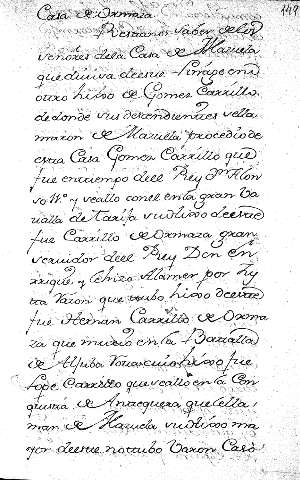 149
Casa de Ormaza
Restanos saber de los
señores dela Casa de Mazuela
que deriva deeste Linage en el
otro hixo de Gomez Carrillo
de donde sus descendientes se lla
maron de Mazuela procedio de
esta Casa Gomez Carrillo que
fue entiempo deel Rey Dn Alon
so y se allo con el en la gran Ba
talla de Tarifa su hixo deeste
fue Carrillo de Ormaza gran
servidor deel Rey Don En
rrique, y por
Varon que tubo hixo deeste
fue Hernan Carrillo de Orma
za que murio en la Batalla
de hixo fue
Lope Carrillo que se allo en la Con
quista de Antequera que lla
man de Mazuela su hixo ma
yor deeste no tubo Varon Casò